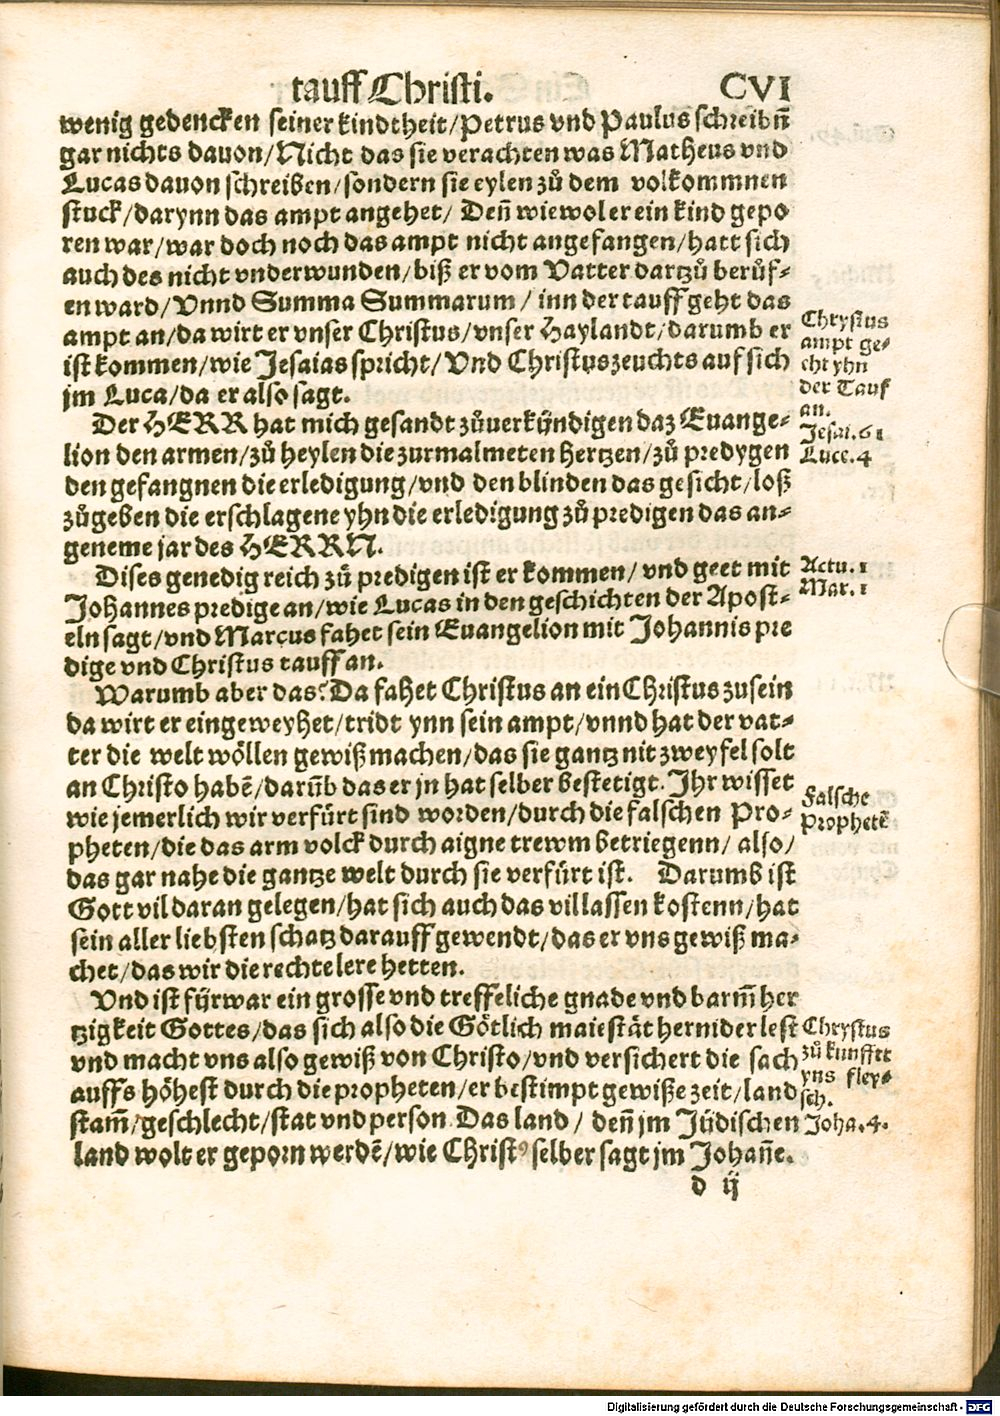 tauff Christi. CVI
wenig gedencken seiner kindtheit/Petrus vnd Paulus schreibñ
gar nichts dauon/Nicht das sie verachten was Matheus vnd
Lucas dauon schreiben/sondern sie eylen zů dem volkommnen
stuck/darynn das ampt angehet/ Deñ wiewol er ein kind gepo
ren war/war doch noch das ampt nicht angefangen/hatt sich
auch des nicht vnderwunden/biß er vom Vatter dartzů berůf-
en ward/Vnnd Summa Summarum/ inn der tauff geht das
ampt an/da wirt er vnser Christus/vnser Haylandt/darumb er
ist kommen/wie Jesaias spricht/Vnd Christus zeuchts auf sich
jm Luca/da er also sagt.
Chrystus
ampt ge-
cht yhn
der Tauf
an.
Jesai.61
Luce.4
Der HERR hat mich gesandt zůuerkündigen daz Euange-
lion den armen/zů heylen die zurmalmeten hertzen/zů predygen
den gefangnen die erledigung/vnd den blinden das gesicht/loß
zůgeben die erschlagene yhn die erledigung zů predigen das an-
geneme jar des HERRN.
Dises genedig reich zů predigen ist er kommen/ vnd geet mit
Johannes predige an/wie Lucas in den geschichten der Apost-
eln sagt/vnd Marcus fahet sein Euangelion mit Johannis pre
dige vnd Christus tauff an.
Actu.1
Mar.1
Warumb aber das? Da fahet Christus an ein Christus zu sein
da wirt er eingeweyhet/tridt ynn sein ampt/vnnd hat der vat-
ter die welt wöllen gewiß machen/das sie gantz nit zweyfel solt
an Christo habē/darūb das er jn hat selber bestetigt. Ihr wisset
wie jemerlich wir verfürt sind worden/durch die falschen Pro-
pheten/die das arm volck durch aigne trewm betriegenn/ also/
das gar nahe die gantze welt durch sie verfürt ist. Darumb ist
Gott vil daran gelegen/hat sich auch das vil lassen kostenn/hat
sein aller liebsten schatz darauff gewendt/das er vns gewiß ma-
chet/das wir die rechte lere hetten.
Falsche
Prophetē
Vnd ist fürwar ein grosse vnd treffeliche gnade vnd barm̄her
tzigkeit Gottes/das sich also die Götlich maiestät hernider lest
vnd macht vns also gewiß von Christo/vnd versichert die sach
auffs höhest durch die propheten/er bestimpt gewiße zeit/land
stam̄/geschlecht/stat vnd person Das land/ deñ jm Jüdischen
land wolt er geporn werdē/wie Christꝰ selber sagt jm Johañe.
Chrystus
zů kunfftt
yns fley-
sch.
Joha.4.
d ij
Digitalisierung gefördert durch die Deutsche Forschungsgemeinschaft - DFG